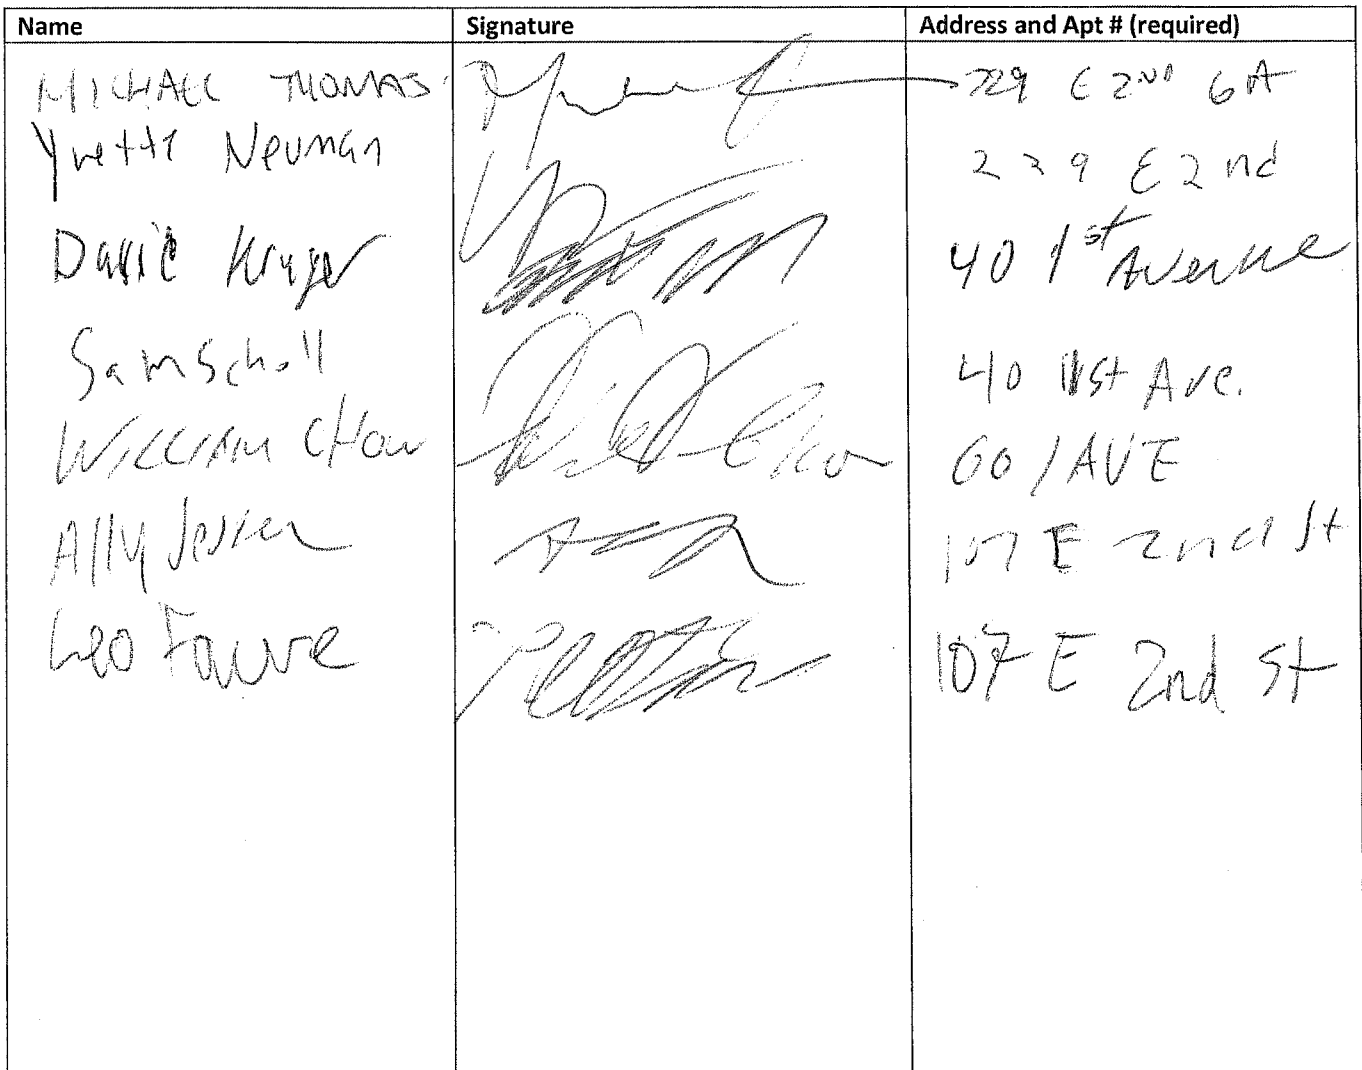 Name Signature Address and Apt # (required)
MICHAEL THOMAS 229 E 2ND 6A
Yvette Neuman 229 E 2nd
David Kruger 40 1st Avenue
Sam Scholl 40 1st Ave.
WILLIAM CHOW 60 1 AVE
Ally 107 E 2nd St
Leo Fauve 107 E 2nd St